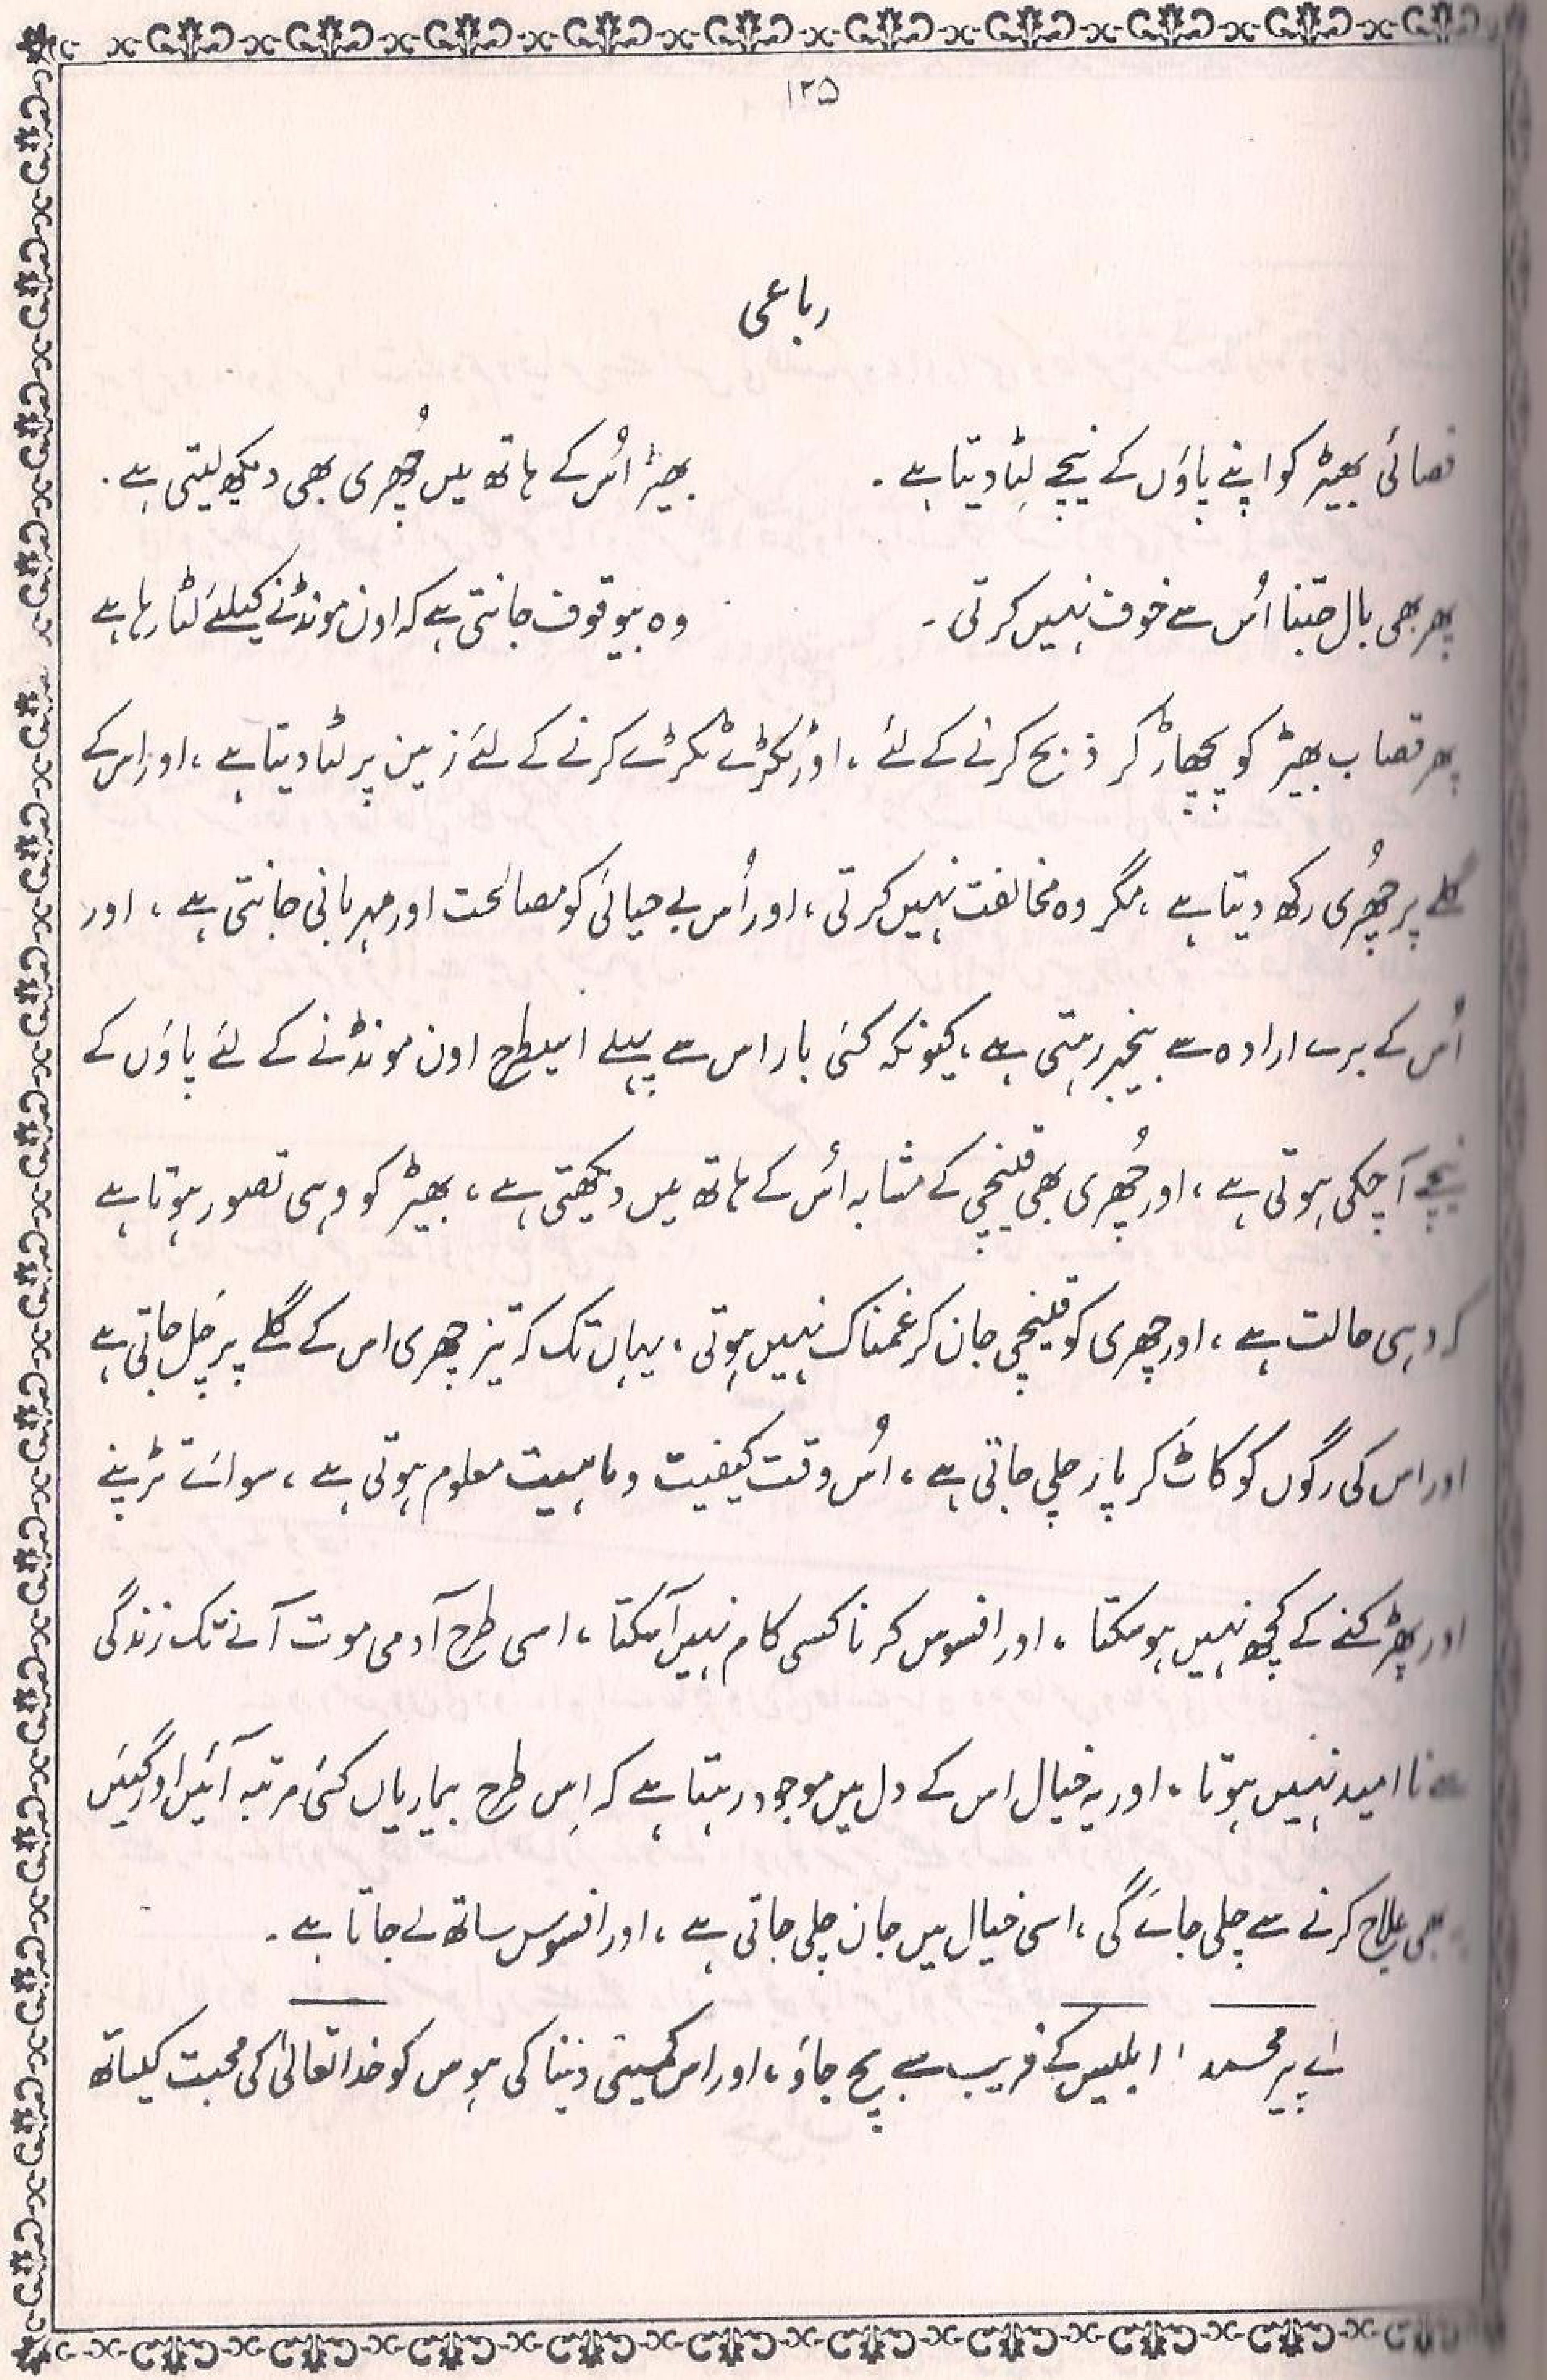 ۱۲۵
رباعی
قصائی بھیڑ کو اپنے پاؤں کے نیچے لِٹا دیتا ہے ۔ بھیڑ اُس کے ہاتھ میں چُھری بھی دیکھ لیتی ہے ۔
پھر بھی بال جتنا اُس سے خوف نہیں کرتی ۔ وہ بیوقوف جانتی ہے کہ اون مونڈنے کیلئے لٹا رہا ہے
پھر قصاب بھیڑ کو پچھاڑ کر ذبح کرنے کے لئے ، اور ٹکڑے ٹکڑے کرنے کے لئے زمین پر لٹا دیتا ہے ، اور اس کے
گلے پر چُھری رکھ دیتا ہے ، مگر وہ مخالفت نہیں کرتی ، اور اُس بے حیائی کو مصالحت اور مہربانی جانتی ہے ، اور
اُس کے برے ارادہ سے بیخبر رہتی ہے ، کیونکہ کئی بار اس سے پہلے اسیطرح اون مونڈنے کے لئے پاؤں کے
نیچے آ چکی ہوتی ہے ، اور چُھری بھی قینچی کے مشابہ اُس کے ہاتھ میں دیکھتی ہے ، بھیڑ کو وہی تصور ہوتا ہے
کہ وہی حالت ہے ، اور چھری کو قینچی جان کر غمناک نہیں ہوتی ، یہاں تک کہ تیز چھری اس کے گلے پر چل جاتی ہے
اور اس کی رگوں کو کاٹ کر پار چلی جاتی ہے ، اُس وقت کیفیت و ماہیت معلوم ہوتی ہے ، سوائے تڑپنے
اور پھڑکنے کے کچھ نہیں ہو سکتا ، اور افسوس کرنا کسی کام نہیں آ سکتا ، اسی طرح آدمی موت آنے تک زندگی
سے نا امید نہیں ہوتا ، اور یہ خیال اس کے دل میں موجود رہتا ہے کہ اِس طرح بیماریاں کئی مرتبہ آئیں اور گئیں
بھی علاج کرنے سے چلی جائے گی ، اسی خیال میں جان چلی جاتی ہے ، اور افسوس ساتھ لے جاتا ہے ۔
اے پیر محمد ! ابلیس کے فریب سے بچ جاؤ ، اور اس کمینی دنیا کی ہوس کو خدا تعالیٰ کی محبت کیساتھ